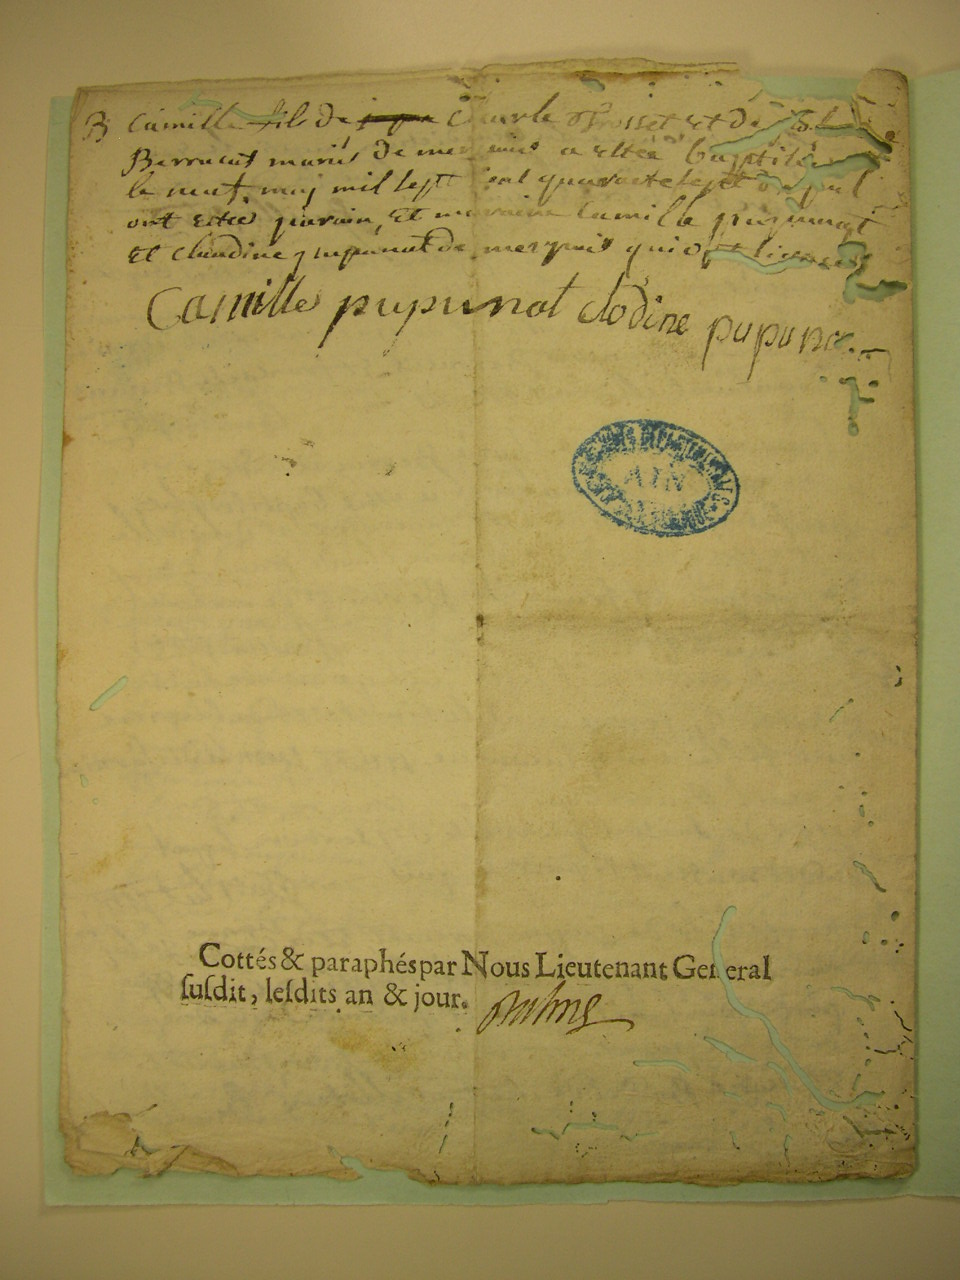 B Camille fils de Charle Frosset et de
Berrucat mariés de a estee baptisé
le neuf maj mil sept cent quarante sept
ont estee parain, et maraine Camille pupunat
Et Claudine pupunat de qui ont
Camille pupunat clodine pupuna
AIN
Cottés & paraphés par Nous Lieutenant General
ſuſdit, leſdits an & jour.